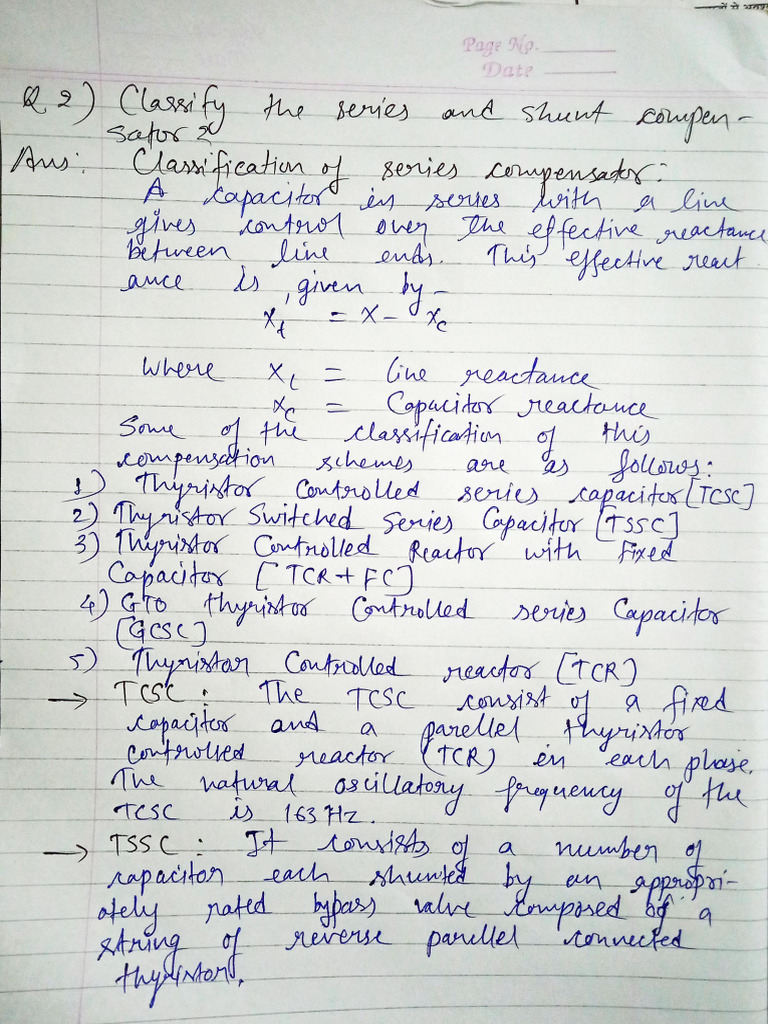 Page No.
Date
Q.2) Classify the series and shunt compen-
sator?
Ans: Classification of series compensator:
A capacitor in series with a line
gives control over the effective reactance
between line ends. This effective react
ance is given by-
Xt = X - Xc
Where Xt = line reactance
Xc = Capacitor reactance
Some of the classification of this
compensation schemes are as follows:
1) Thyristor Controlled series capacitor [TCSC]
2) Thyristor Switched Series Capacitor [TSSC]
3) Thyristor Controlled Reactor with Fixed
Capacitor [TCR+FC]
4) GTO thyristor Controlled series Capacitor
[GCSC]
5) Thyristor Controlled reactor [TCR)
→ TCSC : The TCSC consist of a fixed
capacitor and a parellel thyristor
controlled reactor (TCR) in each phase.
The natural oscillatory frequency of the
TCSC is 163 Hz.
→ TSSC : It consists of a number of
capacitor each shunted by an appropri-
ately rated bypass valve composed of a
string of reverse parellel connected
thyristor.